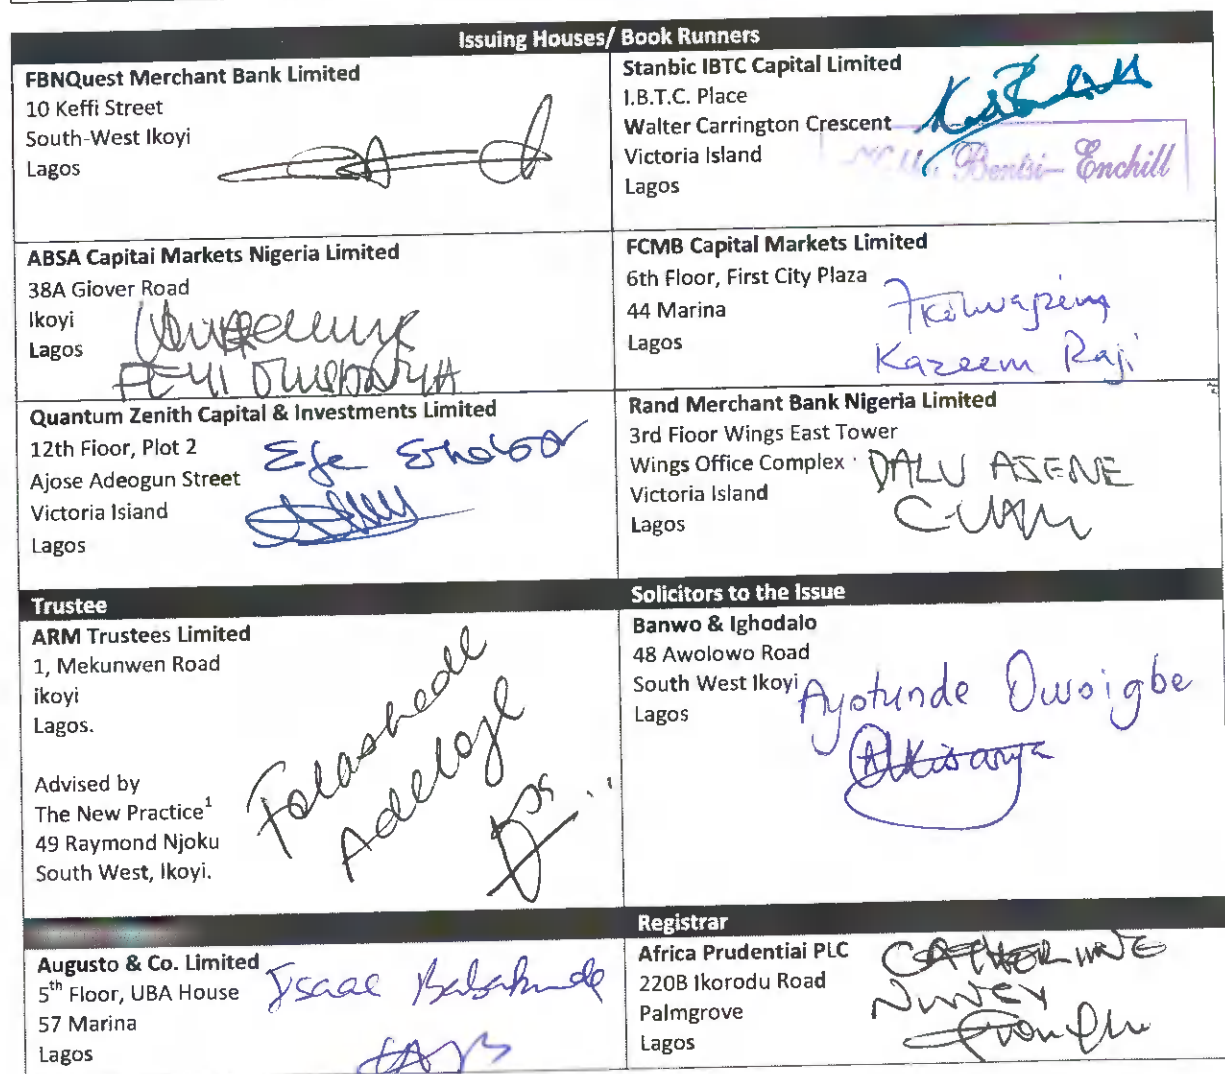 Issuing Houses/ Book Runners
FBNQuest Merchant Bank Limited
10 Keffi Street
South-West Ikoyi
Lagos
Stanbic IBTC Capital Limited
I.B.T.C. Place
Walter Carrington Crescent
Victoria Island
Lagos
Bentsi-Enchill
ABSA Capitai Markets Nigeria Limited
38A Giover Road
Ikoyi
Lagos
FCMB Capital Markets Limited
6th Floor, First City Plaza
44 Marina
Lagos
Kazeem Raji
Quantum Zenith Capital & Investments Limited
12th Fioor, Plot 2
Ajose Adeogun Street
Victoria Isiand
Lagos
Efe
Rand Merchant Bank Nigeria Limited
3rd Floor Wings East Tower
Wings Office Complex
Victoria Island
Lagos
DALU
Trustee
ARM Trustees Limited
1, Mekunwen Road
ikoyi
Lagos.
Advised by
The New Practice¹
49 Raymond Njoku
South West, Ikoyi.
Folashade
Adeloye
Solicitors to the Issue
Banwo & Ighodalo
48 Awolowo Road
South West Ikoyi
Lagos
Ayotunde Owoigbe
Augusto & Co. Limited
5th Floor, UBA House
57 Marina
Lagos
Isaac Babatunde
Registrar
Africa Prudentiai PLC
220B Ikorodu Road
Palmgrove
Lagos
CATHERINE